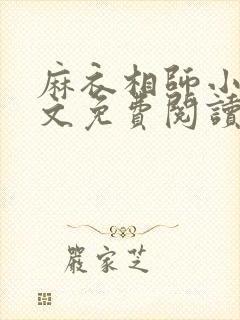 麻衣相師小
文免費閱讀
嚴家芝